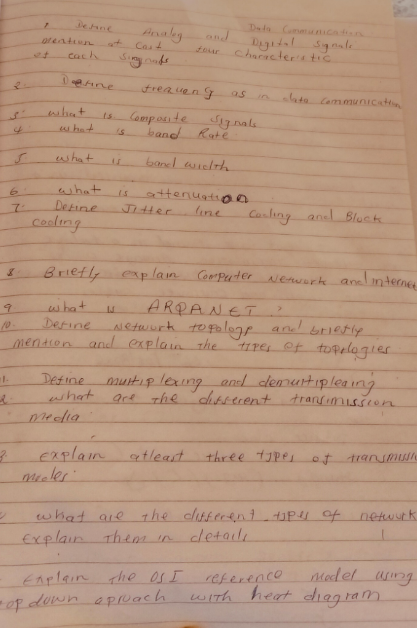 1. Define Analog and Data Communication
mention at least four Digital Signals
of each singnals characteristic
2. Define frequency as in data communication
3. what is Composite signals
4. what is band Rate
5. what is band width
6. what is attenuation
7. Define Jitter line coding and Block
cooling
8. Briefly explain Computer Network and internet
9. what is ARPANET?
10. Define network topology and briefly
mention and explain the types of topologies
1. Define multiplexing and demultiplexing
2. what are the different transmission
media
3. explain atleast three types of transmissi
modes
what are the different types of network
Explain them in details
Explain the OSI reference model using
top down aproach with heat diagram